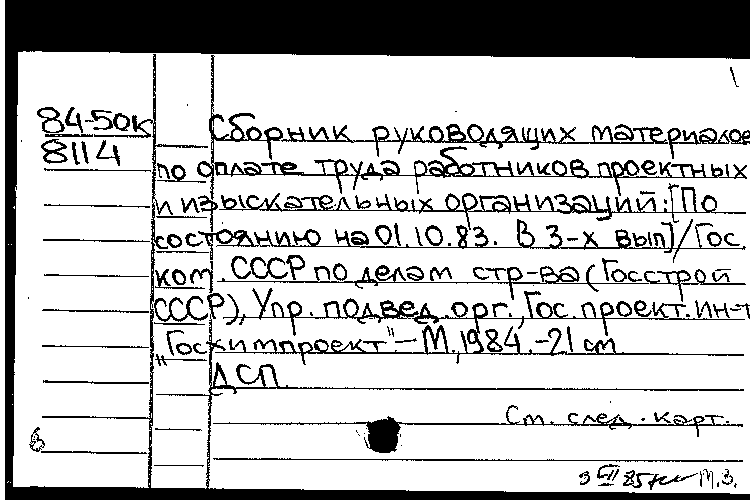 84-50к
8114
Сборник руководящих материалов
по оплате труда работников проектных
и изыскательных организаций: [По
состоянию на 01.10.83. В 3-х вып]/Гос.
ком. СССР по делам стр-ва (Госстрой
СССР), Упр. подвед. орг., Гос. проект. ин-т
„Госхимпроект".-М., 1984.-21 см
ДСП.
См. след. карт.
М.З.